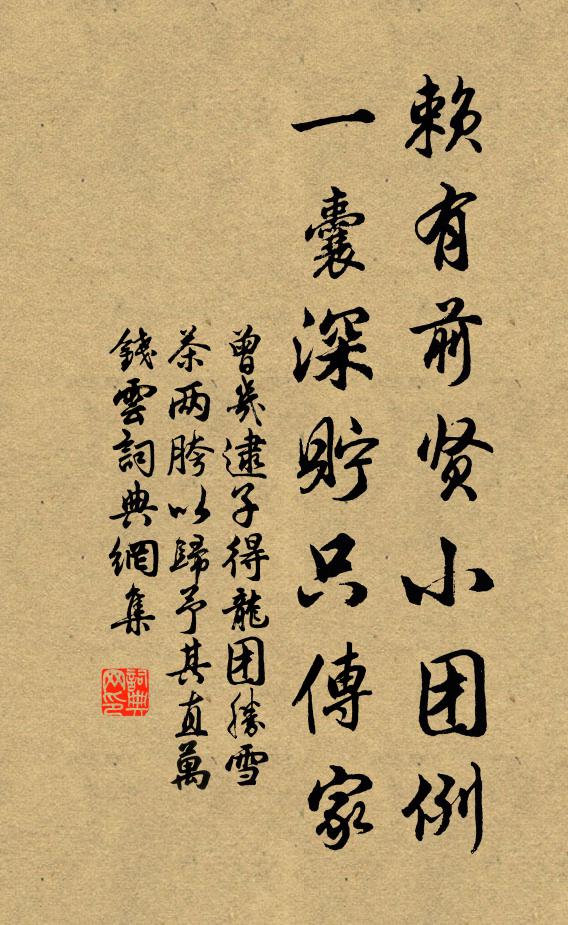 賴有前贤小团例
一囊深貯只傳家
曾幾逮子得龍团勝雪
茶两胯以歸予其直萬
錢雲詞典網集
詞典
网印